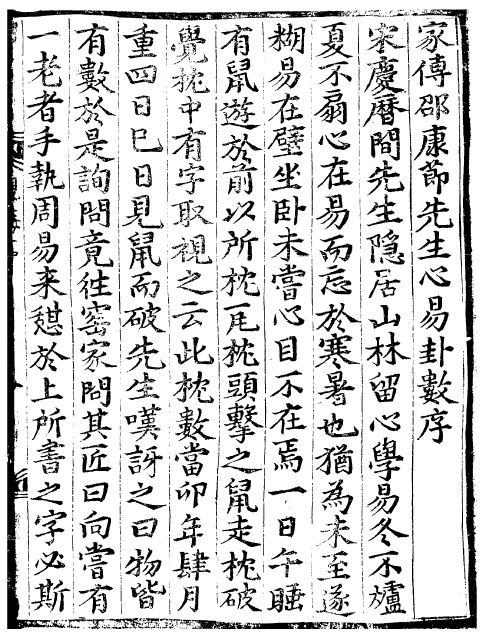 家傳邵康節先生心易卦數序
宋慶曆間先生隐居山林留心學易冬不爐
夏不扇心在易而忘於寒暑也猶為未至遂
糊易在壁坐卧未嘗心目不在焉一日午睡
有鼠遊於前以所枕瓦枕頭擊之鼠走枕破
覺枕中有字取視之云此枕數當卯年肆月
重四日巳日見鼠而破先生嘆訝之曰物皆
有數於是詢問竟徃窑家問其匠曰向嘗有
一老者手執周易来憇於上所書之字必斯